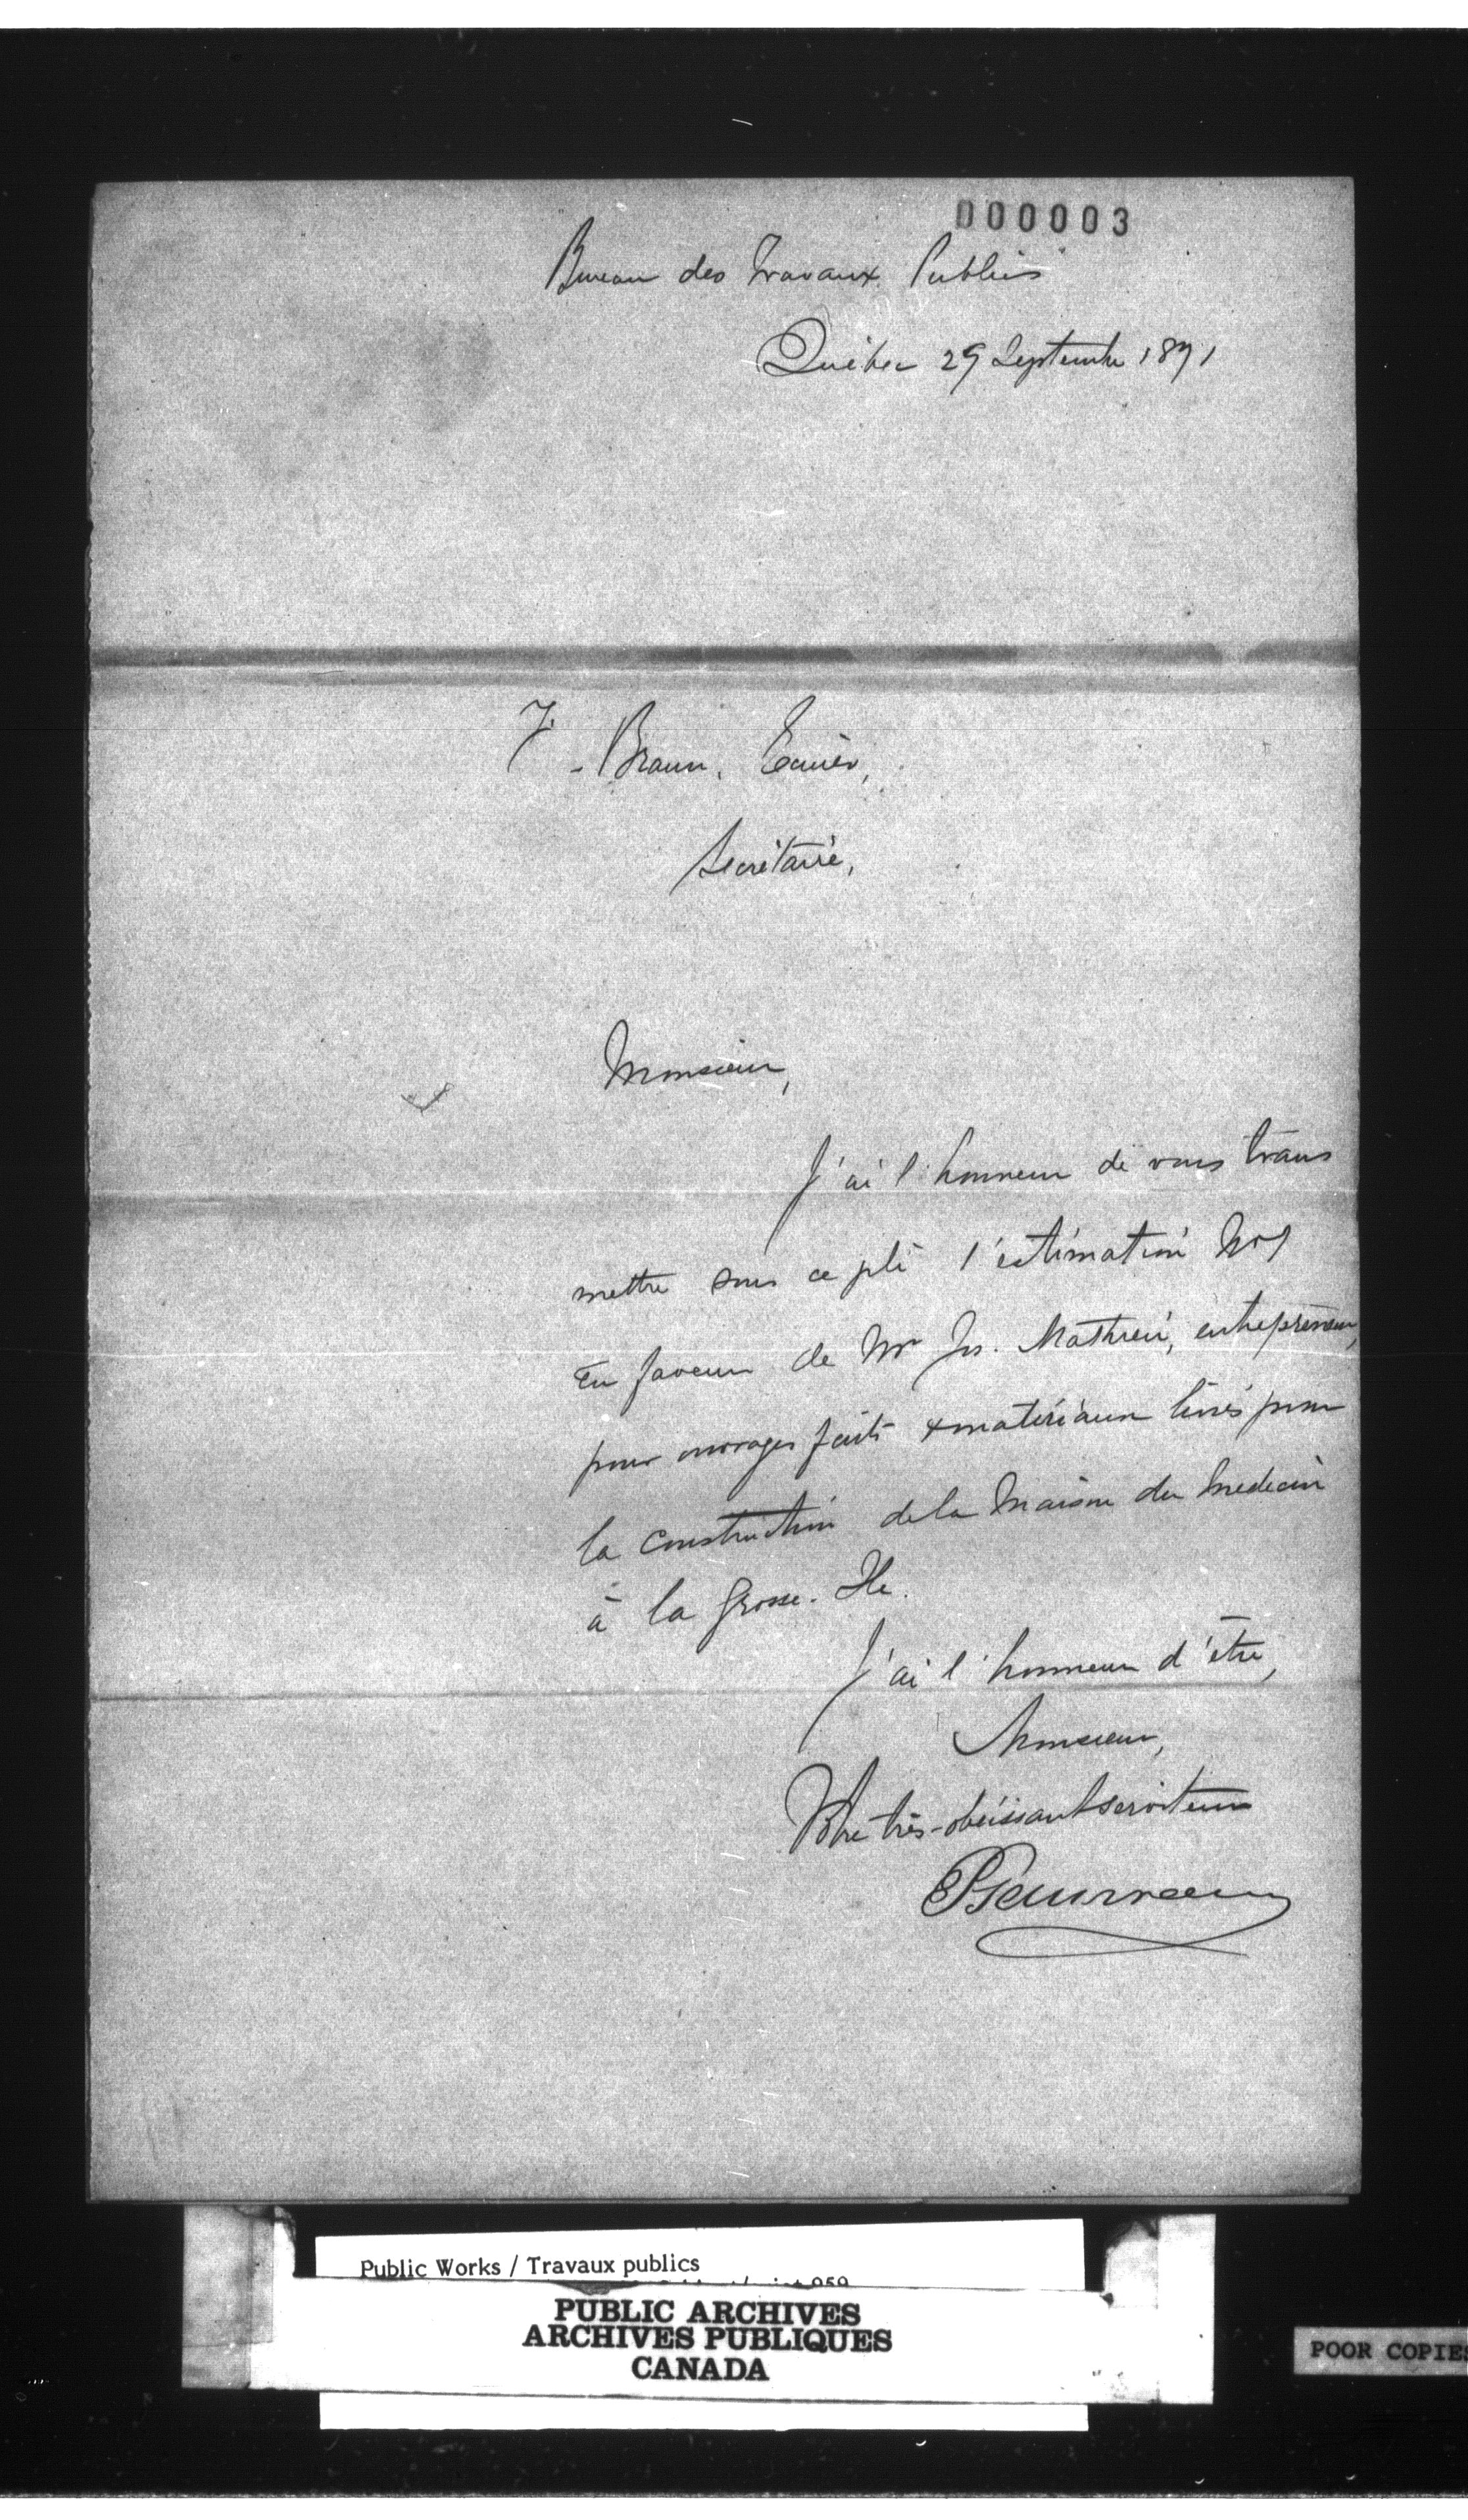 000003
Bureau des Travaux Publics
Québec 29 Septembre 1871
F. Braun, Ecuier,
Secrétaire,
Monsieur,
J'ai l'honneur de vous trans
mettre sous ce pli l'estimation No 1
en faveur de Mr Jos. Mathieu, entrepreneur,
pour ouvrages faits & matériaux livrés pour
la construction de la Maison du Médecin
à la Grosse-Ile.
J'ai l'honneur d'être,
Monsieur,
Votre très-obéissant serviteur
Public Works / Travaux publics
959
PUBLIC ARCHIVES
ARCHIVES PUBLIQUES
CANADA
POOR COPIES